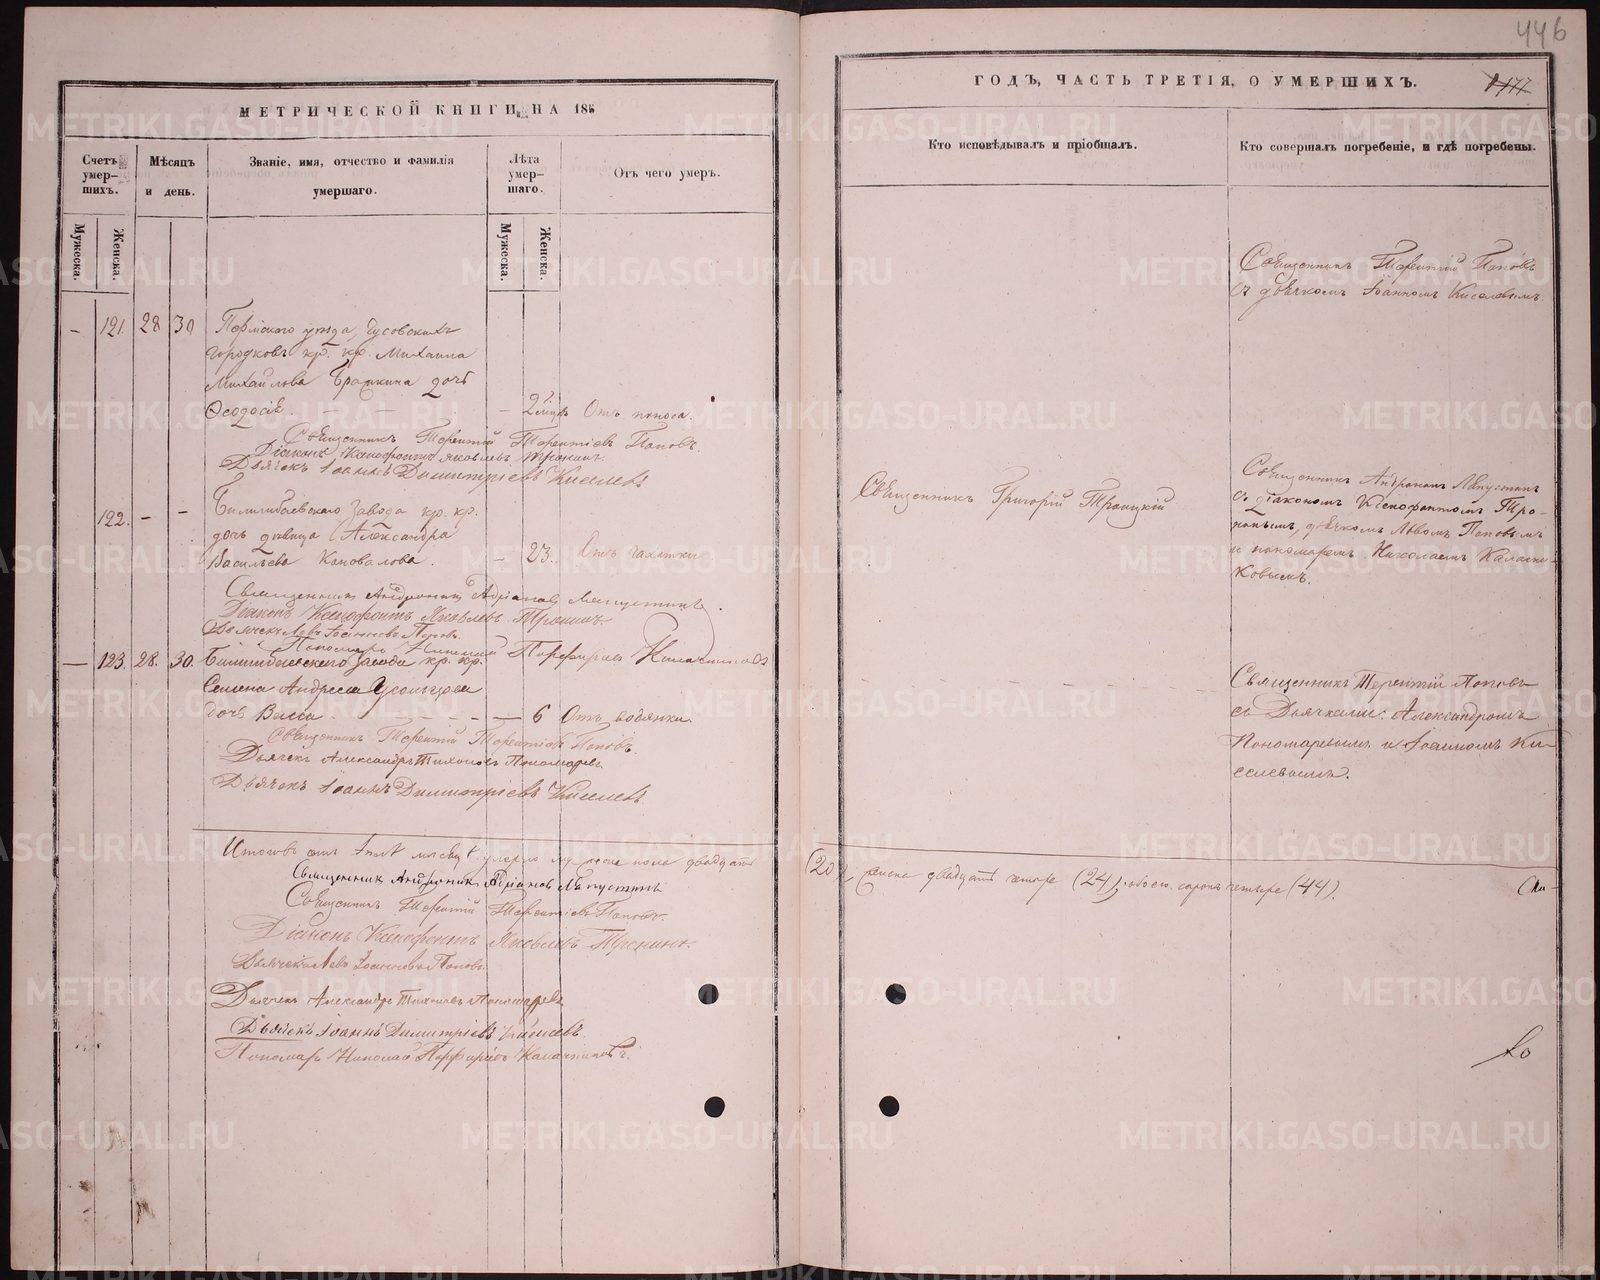 446
МЕТРИЧЕСКОЙ КНИГИ НА 185
ГОДЪ, ЧАСТЬ ТРЕТІЯ, О УМЕРШИХЪ.
177
Счетъ умер-шихъ.
Мѣсяцъ и день.
Званіе, имя, отчество и фамилія умершаго.
Лѣта умер-шаго.
Отъ чего умеръ.
Кто исповѣдывалъ и пріобщалъ.
Кто совершалъ погребеніе, и гдѣ погребены.
Мужеска.
Женска.
Мужеска.
Женска.
Священникъ Терентій Поповъ
съ дьячкомъ Іоанномъ Киселевымъ
121. 28 30 Пермскаго уѣзда, Чусовскихъ
городковъ кр. кр. Михаила
Михайлова дочь
Ѳеодосія 2 Отъ поноса.
Священникъ Терентій Терентіевъ Поповъ.
Діаконъ Ксенофонтъ Яковлевъ Тронинъ.
Дьячекъ Іоаннъ Димитріевъ Киселевъ
122. Билимбаевскаго Завода кр. кр.
дочь дѣвица Александра
Васильева Коновалова. 23. Отъ чахотки
Священникъ Григорій Троицкій
Священникъ Андроникъ Ляпустинъ
съ діакономъ Ксенофонтомъ Тро-
нинымъ, дьячкомъ Львомъ Поповымъ
и пономаремъ Николаемъ Калашни-
ковымъ.
Священникъ Андроникъ Адріановъ Ляпустинъ.
Діаконъ Ксенофонтъ Яковлевъ Тронинъ.
Дьячекъ Левъ Іоанновъ Поповъ.
Пономарь Николай Порфирьевъ Калашниковъ
123. 28. 30. Билимбаевскаго Завода кр. кр.
Семена Андреева
дочь Васса 6 Отъ водянки.
Священникъ Терентій Поповъ
съ Дьячками: Александромъ
Пономаревымъ и Іоанномъ Ки-
селевымъ.
Священникъ Терентій Терентіевъ Поповъ.
Дьячекъ Александръ Тихоновъ Пономаревъ
Дьячекъ Іоаннъ Димитріевъ Киселевъ
Итого въ Іюлѣ мѣсяцѣ умерло мужеска пола двадцать (20), женска двадцать четыре (24), обоего сорокъ четыре (44).
Священникъ Андроникъ Адріановъ Ляпустинъ
Священникъ Терентій Терентіевъ Поповъ.
Діаконъ Ксенофонтъ Яковлевъ Тронинъ.
Дьячекъ Левъ Іоанновъ Поповъ.
Дьячекъ Александръ Тихоновъ Пономаревъ
Дьячекъ Іоаннъ Димитріевъ Киселевъ.
Пономарь Николай Порфирьевъ Калашниковъ.
METRIKI.GASO-URAL.RU